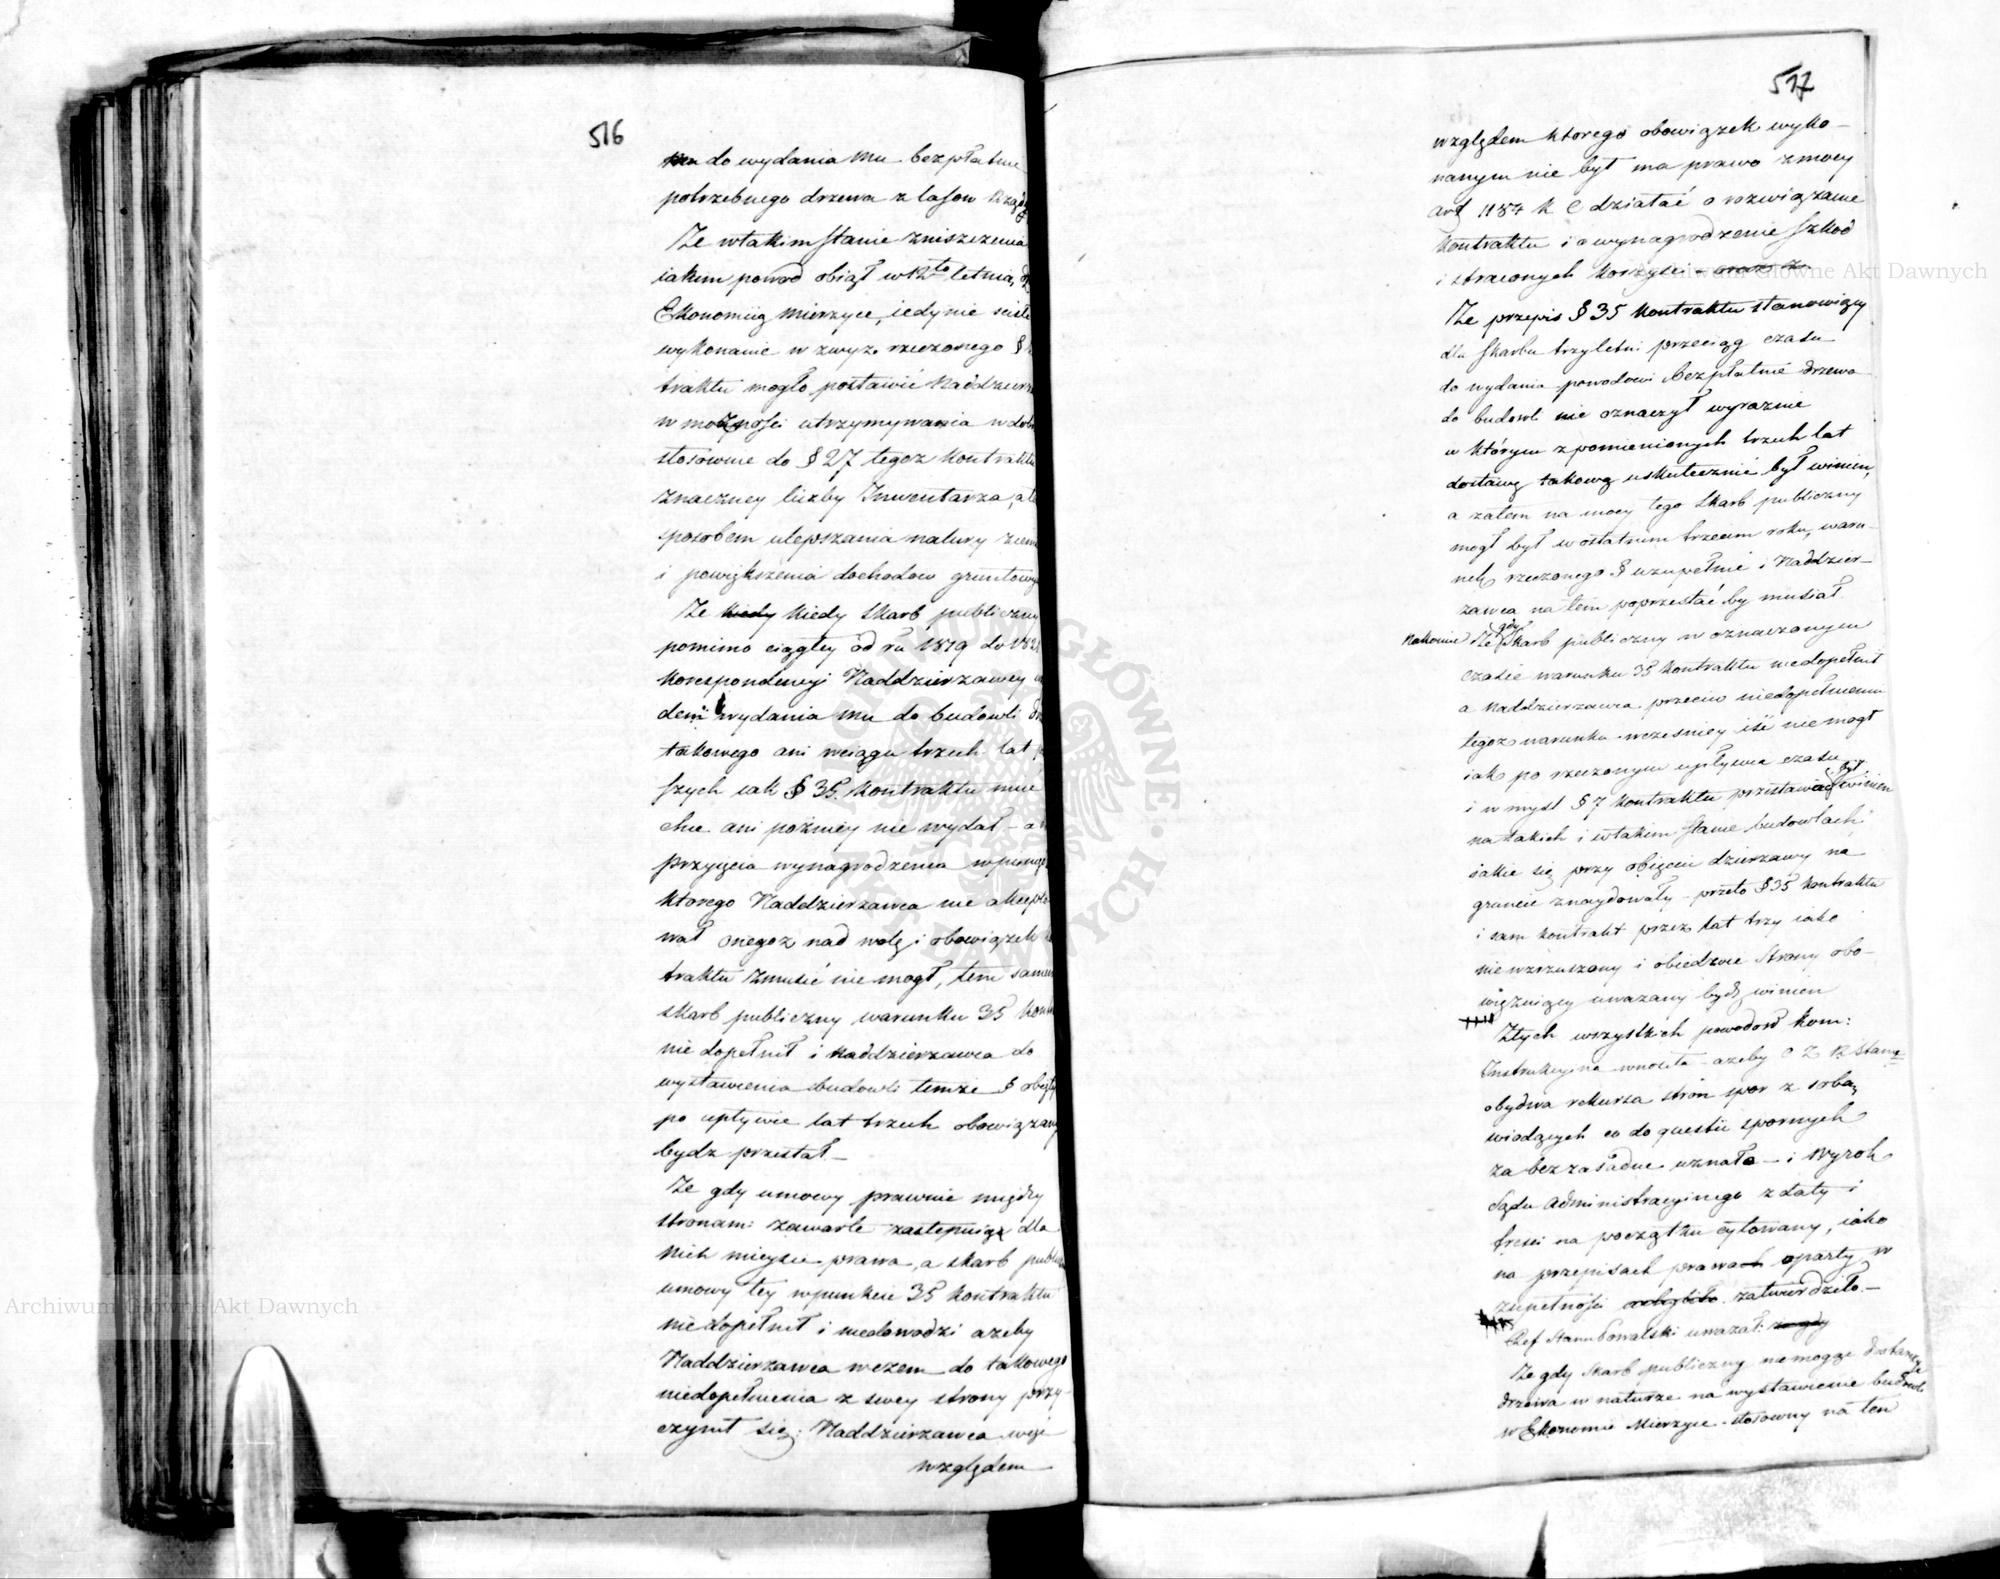 516
do wydania mu bezpłatnie
potrzebnego drzewa z lasow Rządo
Ze wtakim stanie zniszczenia
iakim powod obiął w 12to letnią
Ekonomiią Mierzyce, iedynie scisłe
wykonanie w zwyz rzeczonego §
traktu mogło postawić Naddzierz
w możności utrzymywania w dob
stosownie do § 27 tegoz kontraktu
znaczney liczby Inwentarza, a
sposobem ulepszania natury ziemi
i powiększenia dochodow gruntowy
Ze kiedy kiedy Skarb publiczny
pomimo ciągłey od ru 1819 do 182
korespondencyi Naddzierzawcy
dem wydania mu do budowli
takowego ani wciągu trzech lat
szych iak § 35. kontraktu mieć
chce ani poźniey nie wydał – a
przyięcia wynagrodzenia w
ktorego Naddzierzawca nie akcepto
wał onegoz nad wolę i obowiązek
traktu zmusić nie mogł, tem samem
skarb publiczny warunku 35 kon
nie dopełnił i naddzierzawca do
wystawienia budowli temże § obięty
po upływie lat trzech obowiązany
bydz przestał –
Ze gdy umowy prawnie między
stronami zawarte zastępuią dla
nich mieysce prawa, a skarb publi
umowy tey w punkcie 35 kontraktu
nie dopełnił i niedowodzi azeby
Naddzierzawca wczem do takowego
niedopełnienia z swey strony przy-
czynił się; Naddzierzawca więc
względem
517
względem ktorego obowiązek wyko-
nanym nie był ma prawo z mocy
Art 1184 K C działać o rozwiązanie
kontraktu i o wynagrodzenie szkod
i straconych korzyści – oraz z
Ze przepis § 35 kontraktu stanowiący
dla skarbu trzyletni przeciąg czasu
do wydania powodowi bezpłatnie drzewa
do budowli nie oznaczył wyraznie
w którym z pomienionych trzech lat
dostawę takową uskutecznić był winien,
a zatem na mocy tego Skarb publiczny
mogł był w ostatnim trzecim roku, waru-
nek rzeczonego § uzupełnić i Naddzier-
zawca na tem poprzestać by musiał
Nakoniec Ze gdy Skarb publiczny w oznaczonym
czasie warunku 35 kontraktu niedopełnił
a naddzierzawca przeciw niedopełnieniu
tegoz warunku wcześniey iść nie mogł
iak po rzeczonym upływie czasu
i w myśl § 7 kontraktu przestawać był winien
na takich i wtakim stanie budowlach
iakie się przy obięciu dzierzawy na
gruncie znaydowały – przeto § 35 kontraktu
i sam kontrakt przez lat trzy iako
niewzruszony i obiedwie strony obo-
wiązuiący uwazany bydź winien
Ztych wszystkich powodow Kom:
Instrukcyina wnosiła – azeby
obydwa rekursa stron spor z sobą
wiodących co do questii spornych
za bezzasadne uznała – i Wyrok
Sądu Administracyinego z daty i
treści na początku cytowany, iako
na przepisach prawa oparty, w
zupełności zatwierdziła. –
Szef uwazał: ze gdy
Ze gdy Skarb publiczny niemogąc dostarczyć
drzewa w naturze na wystawienie budowli
w Ekonomii Mierzyce stosowny na ten